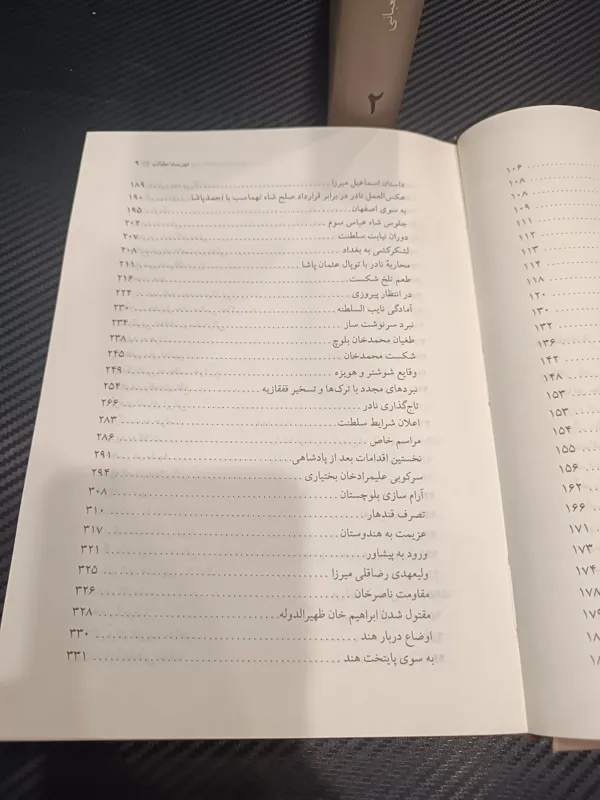 عبانی
۲
فهرست مطالب ۹
داستان اسماعیل میرزا ۱۸۹
عکس‌العمل نادر در برابر قرارداد صلح شاه تهماسب با احمدپاشا ۱۹۰
به سوی اصفهان ۱۹۵
جلوس شاه عباس سوم ۲۰۲
دوران نیابت سلطنت ۲۰۷
لشکرکشی به بغداد ۲۰۸
محاربهٔ نادر با توپال عثمان پاشا ۲۱۱
طعم تلخ شکست ۲۱۶
در انتظار پیروزی ۲۲۴
آمادگی نایب السلطنه ۲۳۰
نبرد سرنوشت ساز ۲۳۴
طغیان محمدخان بلوچ ۲۳۸
شکست محمدخان ۲۴۵
وقایع شوشتر و هویزه ۲۴۹
نبردهای مجدد با ترک‌ها و تسخیر قفقازیه ۲۵۴
تاج‌گذاری نادر ۲۶۶
اعلان شرایط سلطنت ۲۸۳
مراسم خاص ۲۸۶
نخستین اقدامات بعد از پادشاهی ۲۹۱
سرکوبی علیمرادخان بختیاری ۲۹۴
آرام سازی بلوچستان ۳۰۸
تصرف قندهار ۳۱۰
عزیمت به هندوستان ۳۱۷
ورود به پیشاور ۳۲۱
ولیعهدی رضاقلی میرزا ۳۲۵
مقاومت ناصرخان ۳۲۶
مقتول شدن ابراهیم خان ظهیرالدوله ۳۲۸
اوضاع دربار هند ۳۳۰
به سوی پایتخت هند ۳۳۱
۱۰۶
۱۰۸
۱۰۸
۱۰۹
۱۱۱
۱۱۲
۱۱۳
۱۱۴
۱۱۸
۱۲۰
۱۳۰
۱۳۲
۱۳۶
۱۴۲
۱۴۸
۱۵۳
۱۵۳
۱۵۴
۱۵۵
۱۵۶
۱۶۲
۱۶۶
۱۷۱
۱۷۳
۱۷۴
۱۷۸